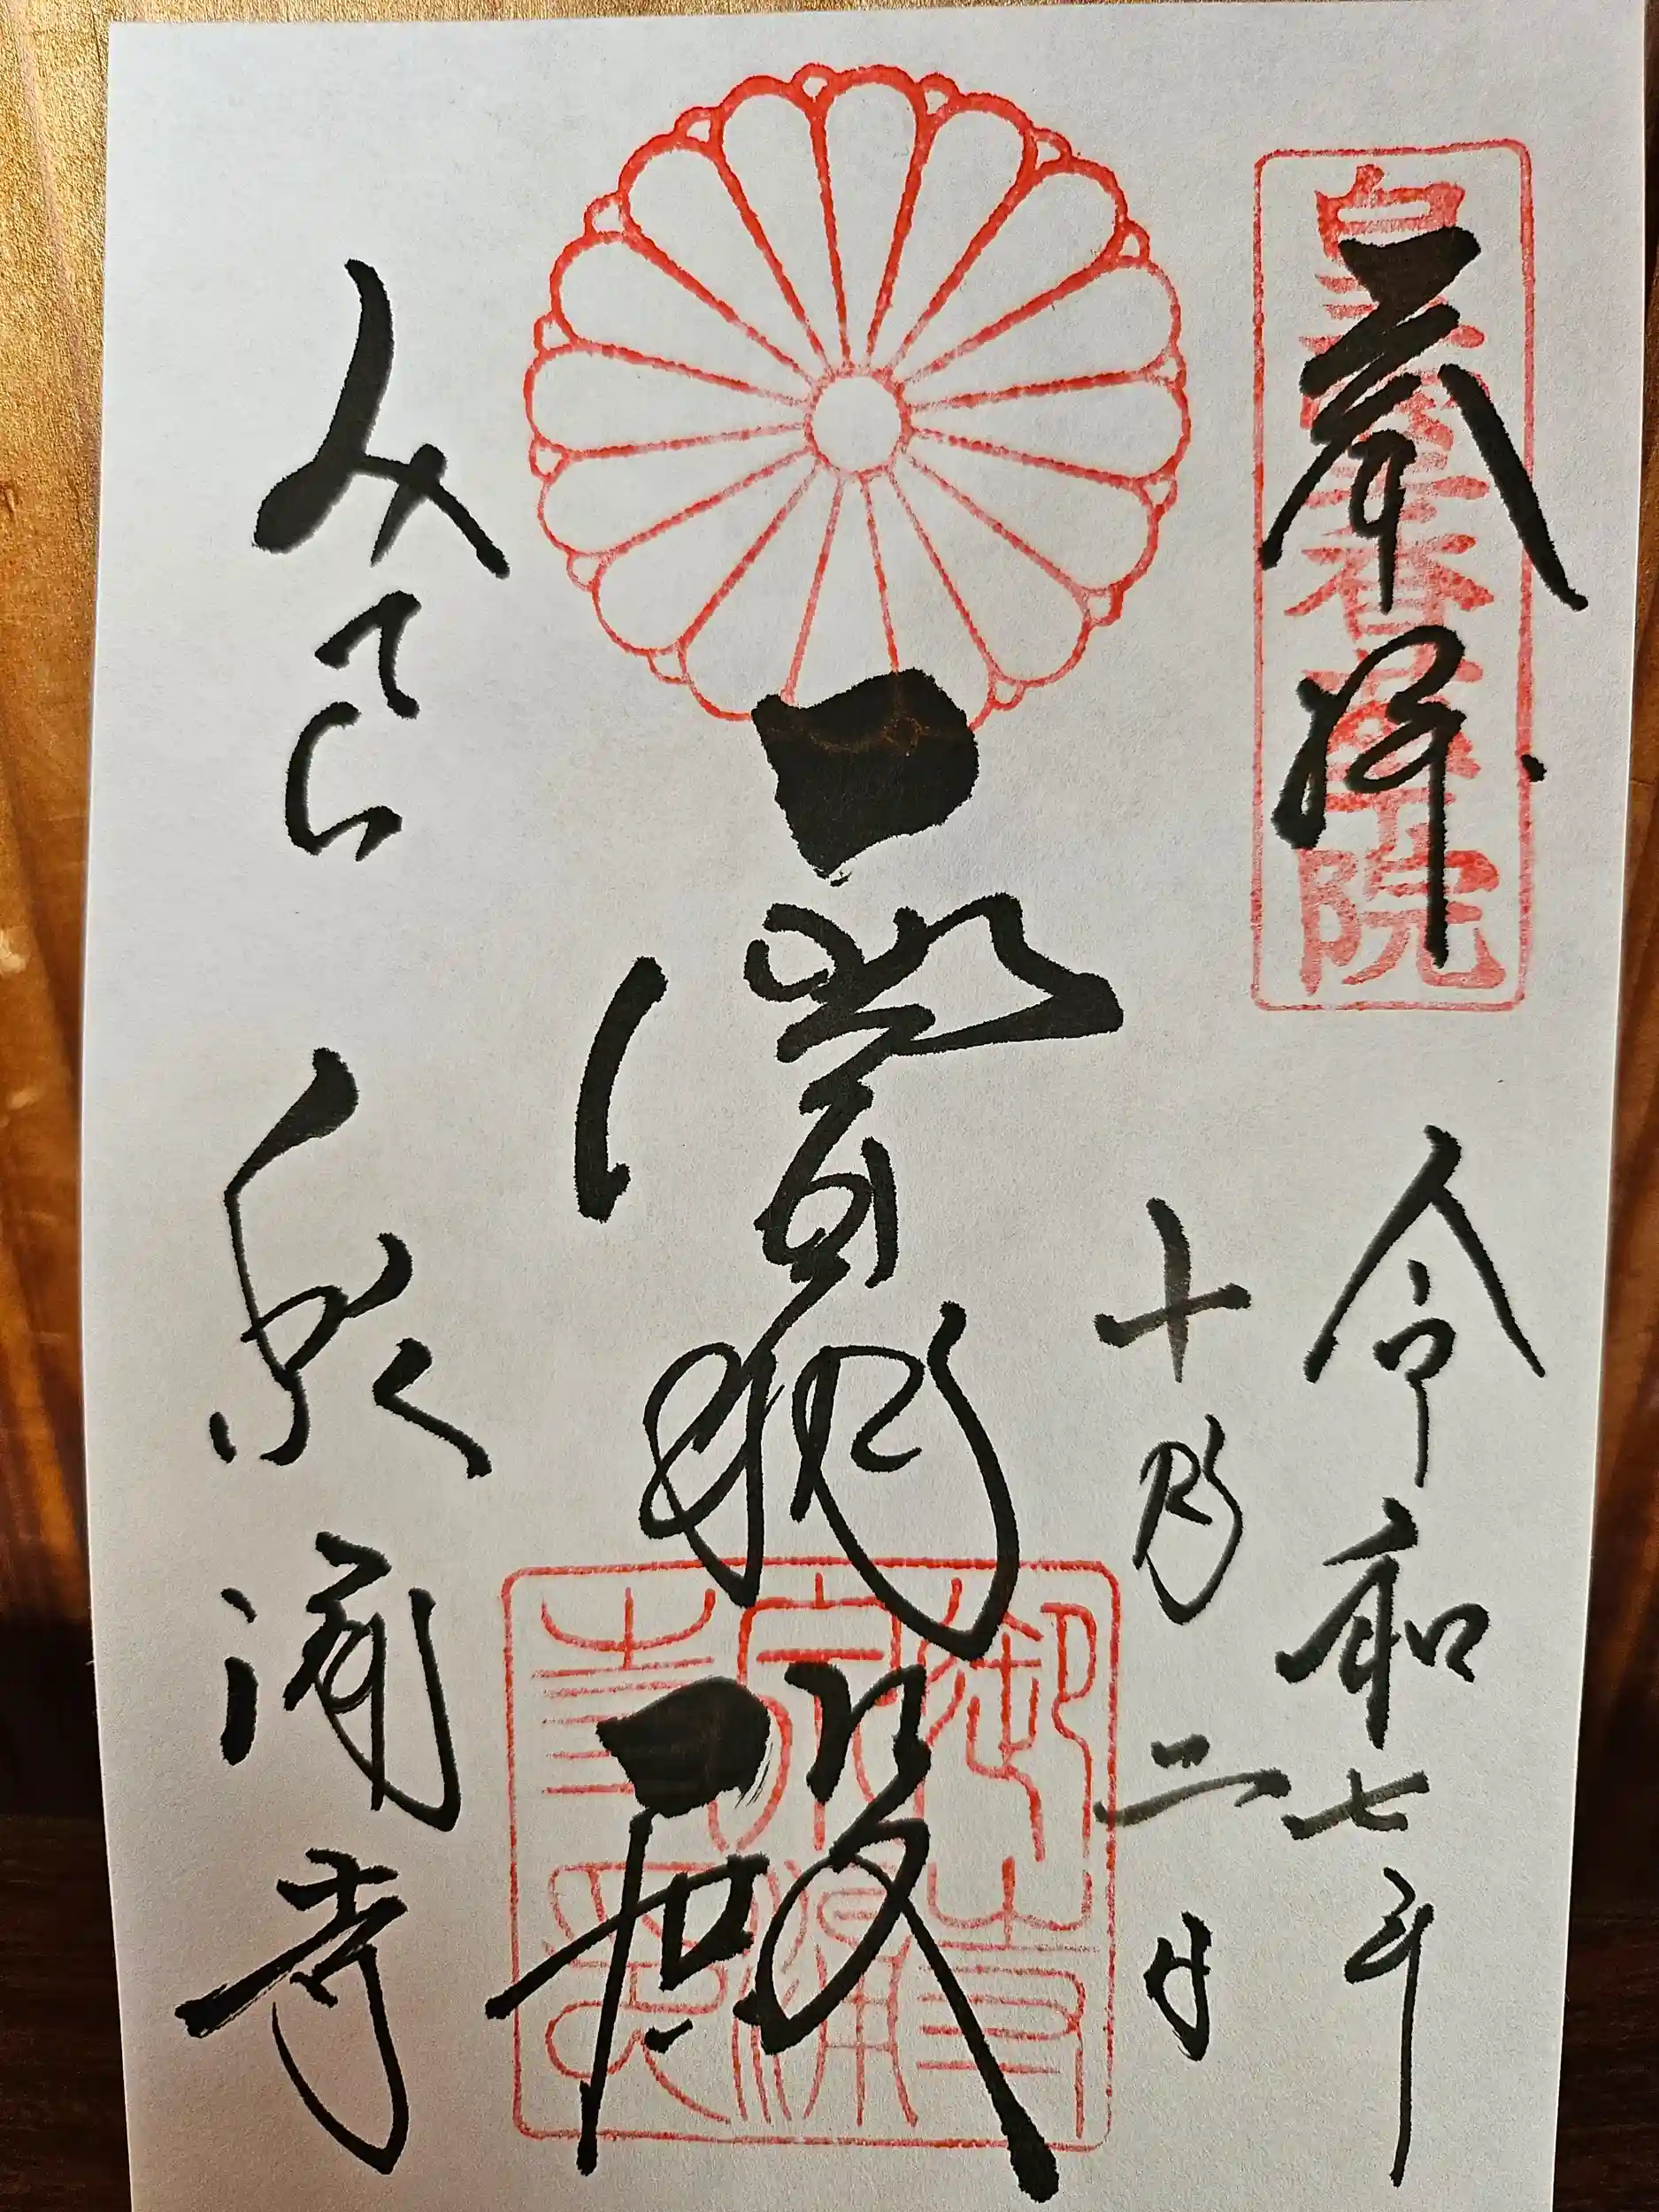 奉拝
皇室香華院
令和七年
十月二日
霊明殿
みてら
泉涌寺